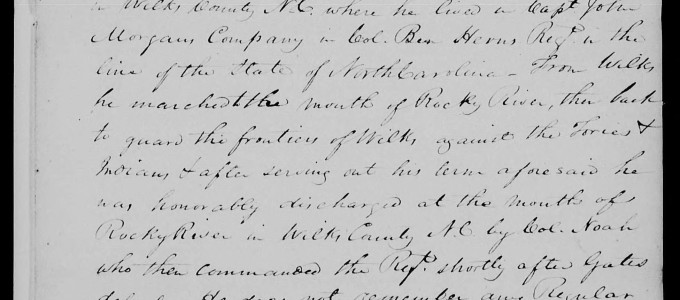 in Wilks County N.C. where he lived in Capt John
Morgans Company in Col. Ben Herns Regt. in the
line of the State of North Carolina - From Wilks
he marched to the mouth of Rocky River, then back
to guard the frontiers of Wilks against the Tories &
Indians & after serving out his term aforesaid he
was honorably discharged at the mouth of
Rocky River in Wilks County N.C by Col. Noah
who then commanded the Regt. shortly after Gates
He does not remember any Regular